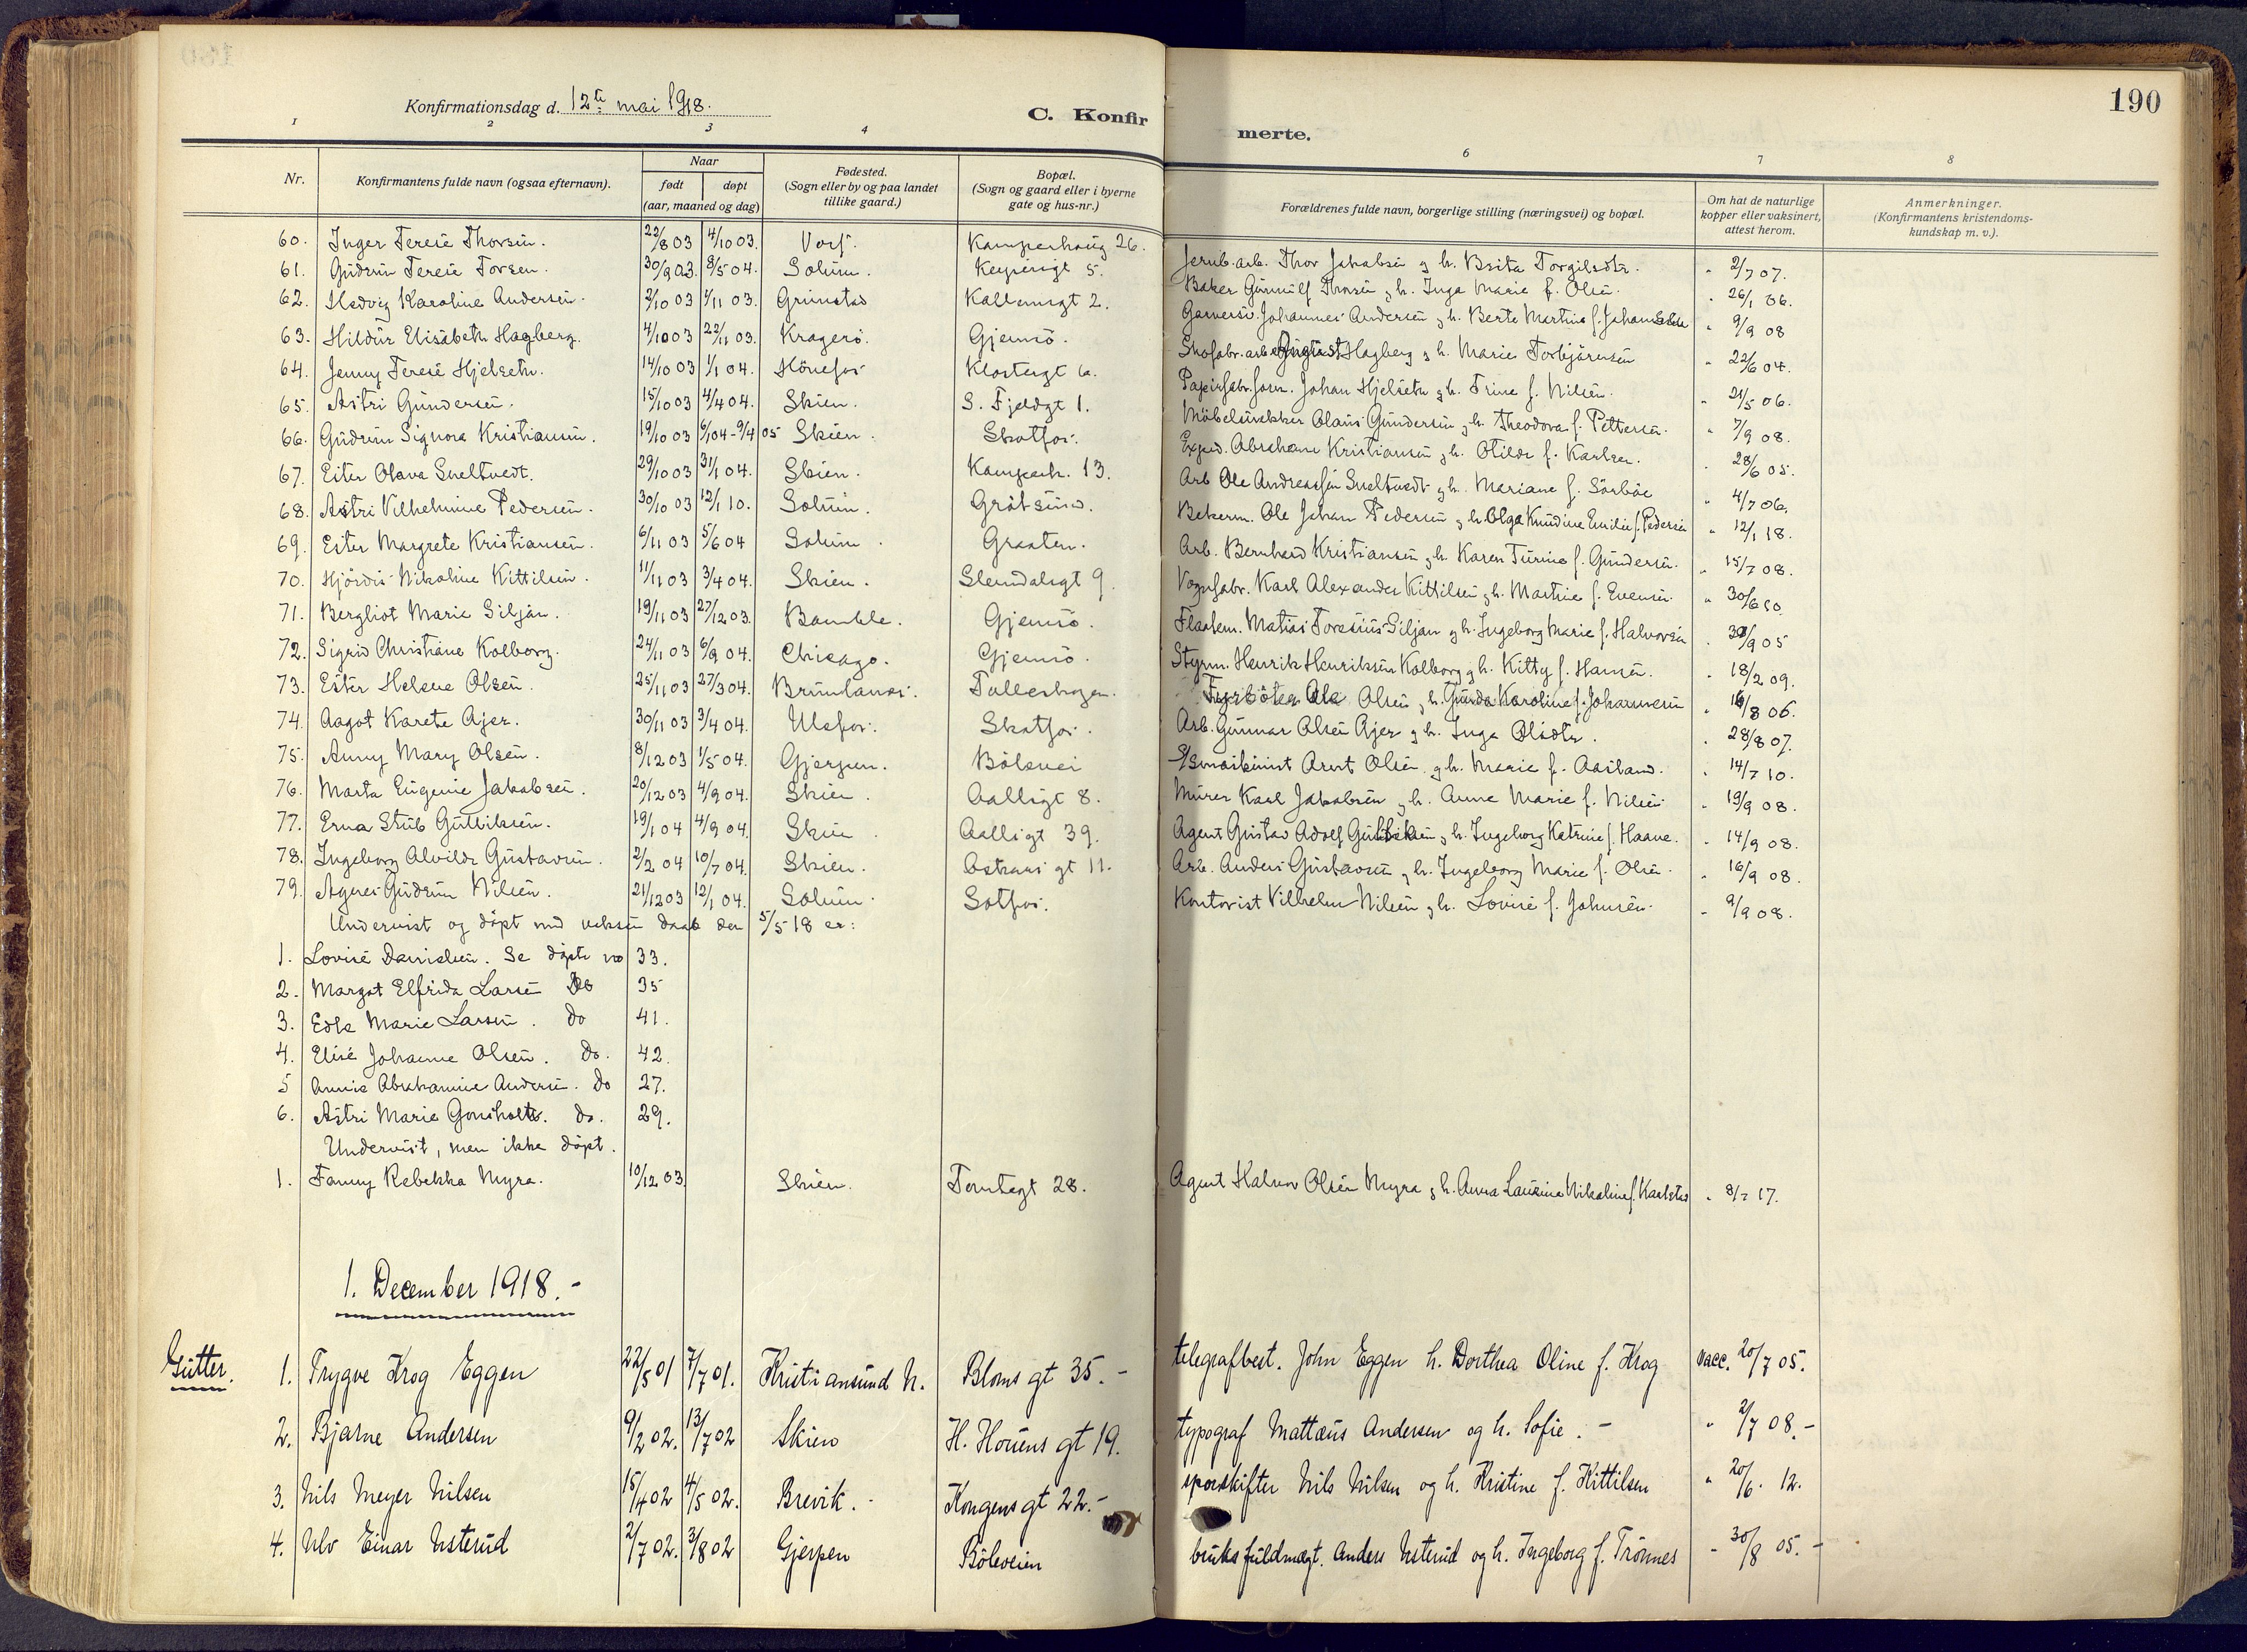 190
Konfirmationsdag d. 12te mai 1918.
C. Konfirmerte.
1 2 3 4 6 7 8
Nr.
Konfirmantens fulde navn (ogsaa efternavn).
Naar
født døpt
(aar, maaned og dag)
Fødested.
(Sogn eller by og paa landet
tillike gaard.)
Bopæl.
(Sogn og gaard eller i byerne
gate og hus-nr.)
Forældrenes fulde navn, borgerlige stilling (næringsvei) og bopæl.
Om hat de naturlige
kopper eller vaksinert,
attest herom.
Anmerkninger.
(Konfirmantens kristendoms-
kundskap m. v.).
60. Inger Terese Thorsen. 22/8 03 4/10 03. Kamperhaug 26. Jernb. arb. Thor Jakobsen og h. Brita Torgilsdtr. " 2/7 07.
61. Gudrun Terese Torsen. 30/9 03. 8/5 04. Solum. 5. Baker Gunnulf Thorsen og h. Inga Marie f. Olsen. " 26/1 06.
62. Hedvig Karoline Andersen. 2/10 03 1/11 03. Grimstad 2. Johannes Andersen og h. Berte Martine f. " 9/9 08
63. Hildur Elisabeth Hagberg. 4/10 03 22/11 03. Kragerö. Gjemsö. Skofabr. arb. August Hagberg og h. Marie Torbjörnsen " 22/6 04.
64. Jenny Terese Hjelseth. 14/10 03 1/1 04. Hönefos Klostergt 6. Papirfabr. form. Johan Hjelseth og h. Trine f. Nilsen. " 21/5 06.
65. Astri Gundersen. 15/10 03 4/4 04. Skien. S. Fjeldgt 1. Möbelsnekker Olaus Gundersen og h. Theodora f. Pettersen. " 7/9 08.
66. Gudrun Signora Kristiansen. 19/10 03 6/1 04 - 9/4 05 Skien. Skotfos. Exped. Abraham Kristiansen og h. Otilde f. Karlsen. " 28/6 05.
67. Ester Olava Sneltvedt. 29/10 03 31/1 04. Skien. Kamperh. 13. Arb Ole Andreassen Sneltvedt og h. Mariane f. Sörböe " 4/7 06.
68. Astri Vilhelmine Pedersen. 30/10 03 12/1 10. Solum. Gråtsund. Ole Johan Pedersen og h. Olga Knudine Emilie f. Pedersen " 12/1 18.
69. Ester Margrete Kristiansen. 6/11 03 5/6 04 Solum. Graaten. Arb. Bernhard Kristiansen og h. Karen Turine f. Gundersen. " 15/7 08.
70. Hjördis Nikoline Kittilsen. 11/11 03 3/4 04. Skien. Slemdalsgt 9. Vognfabr. Karl Alexander Kittilsen og h. Martine f. Evensen. " 30/6 10.
71. Bergliot Marie Siljan. 19/11 03 27/12 03. Bamble. Gjemsö. Matias Toresius Siljan og h. Ingeborg Marie f. Halvorsen " 30/9 05
72. Sigrid Christiane Kolborg. 24/11 03 6/9 04. Chicago. Gjemsö. Styrm. Henrik Henriksen Kolborg og h. Kitty f. Hansen. " 18/2 09.
73. Ester Helene Olsen. 25/11 03 27/3 04. Brunlanes. Tollerhagen. Fyrböter Ole Olsen og h. Gunda Karoline f. Johannesen " 16/8 06.
74. Aagot Karete Ajer. 30/11 03 3/4 04. Ulefos. Skotfos. Arb. Gunnar Olsen Ajer og h. Inga Olsdtr. " 28/8 07.
75. Anny Mary Olsen. 8/12 03 1/5 04. Gjerpen. Bölevei S/Smaskinist Arnt Olsen og h. Marie f. Aasland. " 14/7 10.
76. Marta Eugenie Jakobsen. 20/12 03 4/9 04. Skien. Aallsgt 8. Murer Karl Jakobsen og h. Anne Marie f. Nilsen " 19/9 08.
77. Erna Stub Gulliksen. 19/1 04 4/9 04. Skien Aallsgt 39. Agent Gustav Adolf Gulliksen og h. Ingeborg Katrine f. Haave. " 14/9 08.
78. Ingeborg Alvilde Gustavsen. 2/2 04 10/7 04. Skien. Oskars gt 11. Arb. Anders Gustavsen og h. Ingeborg Marie f. Olsen. " 16/9 08.
79. Agnes Gudrun Nilsen. 21/12 03 12/1 04. Solum. Skotfos. Kontorist Vilhelm Nilsen og h. Lovise f. Johnsen " 9/9 08.
Undervist og döpt med voksen daab den 5/5 18 er:
1. Lovise Danielsen. Se döpte no 33.
2. Margot Elfrida Larsen Do 35
3. Edle Marie Larsen. do 41.
4. Elise Johanne Olsen. do. 42.
5 Annie Abrahamine Andersen. do 27.
6. Astri Marie Gonsholt. do. 29.
Undervist, men ikke döpt.
1. Fanny Rebekka Myra. 10/12 03 Skien. Tomtegt 28. Agent Halvor Olsen Myra og h. Anna Laurine Nikoline f. Karlstad " 8/7 17.
1. December 1918.-
Gutter.
1. Trygve Krog Eggen 22/5 01 7/7 01. Kristiansund N. Bloms gt 35.- telegrafbest. John Eggen h. Dorthea Oline f. Krog Vacc. 20/7 05.
2. Bjarne Andersen 9/2 02. 13/7 02 Skien H. Houens gt 19. typograf Mattæus Andersen og h. Sofie.- " 2/7 08.-
3. Nils Meyer Nilsen 15/4 02 4/5 02. Brevik.- Kongens gt 22.- sporskifter Nils Nilsen og h. Kristine f. Kittilsen " 20/6. 12.
4. Ulv Einar Usterud 2/7 02. 3/8 02 Gjerpen Böleveien bruksfuldmægt. Anders Usterud og h. Ingeborg f. Trönnes - 30/8 05.-